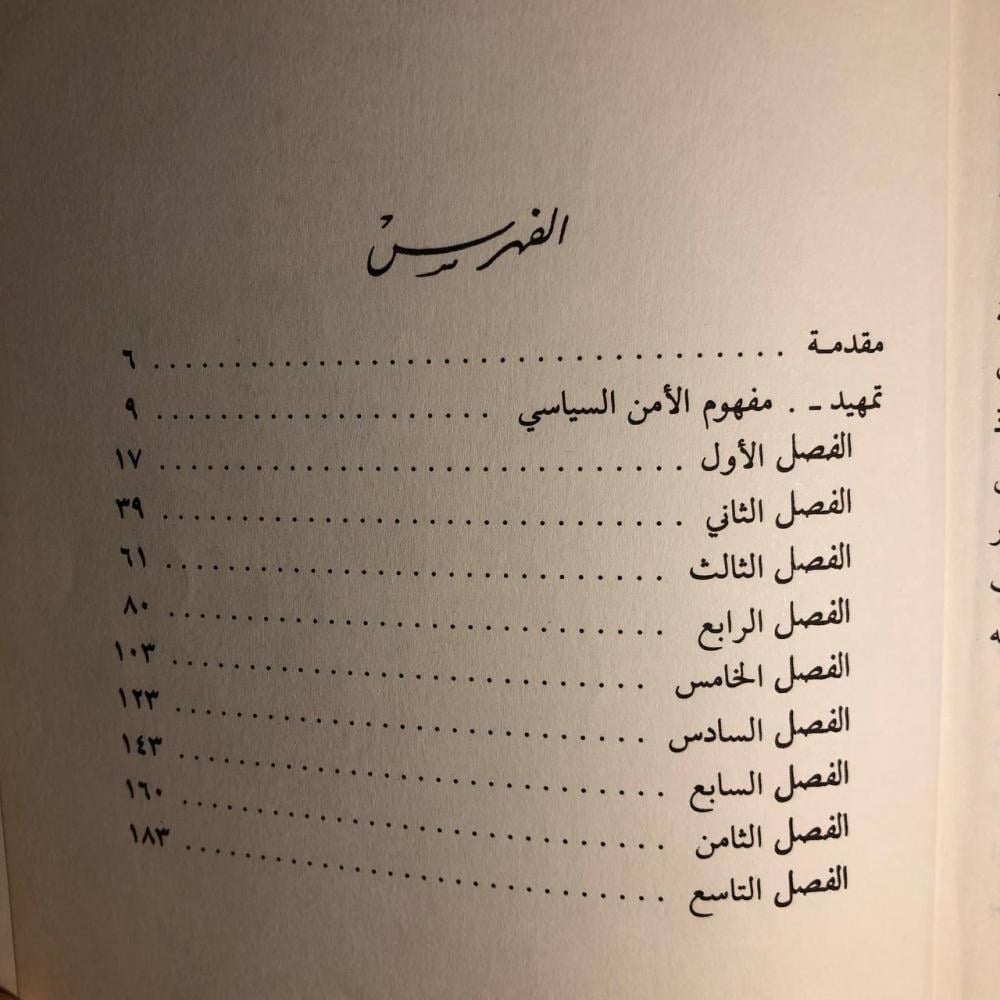 الفهرس
مقدمة ........................................ ٦
تمهيد - . مفهوم الأمن السياسي .................. ٩
الفصل الأول .............................. ١٧
الفصل الثاني .............................. ٣٩
الفصل الثالث .............................. ٦١
الفصل الرابع .............................. ٨٠
الفصل الخامس .............................. ١٠٣
الفصل السادس .............................. ١٢٣
الفصل السابع .............................. ١٤٣
الفصل الثامن .............................. ١٦٠
الفصل التاسع .............................. ١٨٣